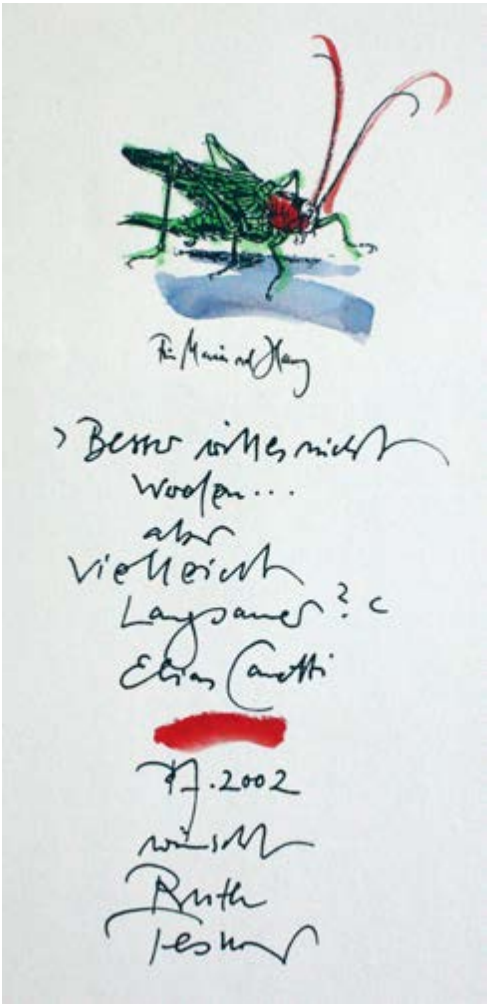 Für Maria und Harry
› Besser will es nicht
werden...
aber
vielleicht
Langsamer? ‹
Elias Canetti
PF. 2002
wünscht
Ruth
Tesmar